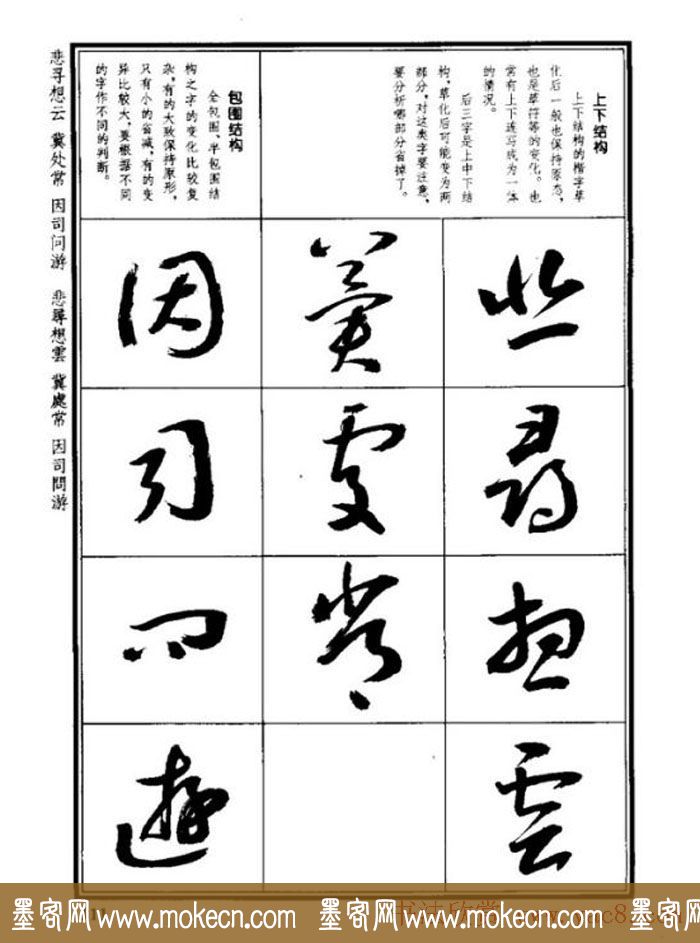 上下结构
上下结构的楷字草
化后一般也保持原态，
也是草符等的变化。也
常有上下连写成为一体
的情况。
后三字是上中下结
构，草化后可能变为两
部分，对这类字要注意，
要分析哪部分省掉了。
包围结构
全包围、半包围结
构之字的变化比较复
杂，有的大致保持原形，
只有小的省减，有的变
异比较大，要根据不同
的字作不同的判断。
悲
尋
想
雲
冀
處
常
因
司
問
遊
悲寻想云 冀处常 因司问游 悲尋想雲 冀處常 因司問游
墨客网 www.mokecn.com 墨客网 www.mokecn.com
书法欣赏